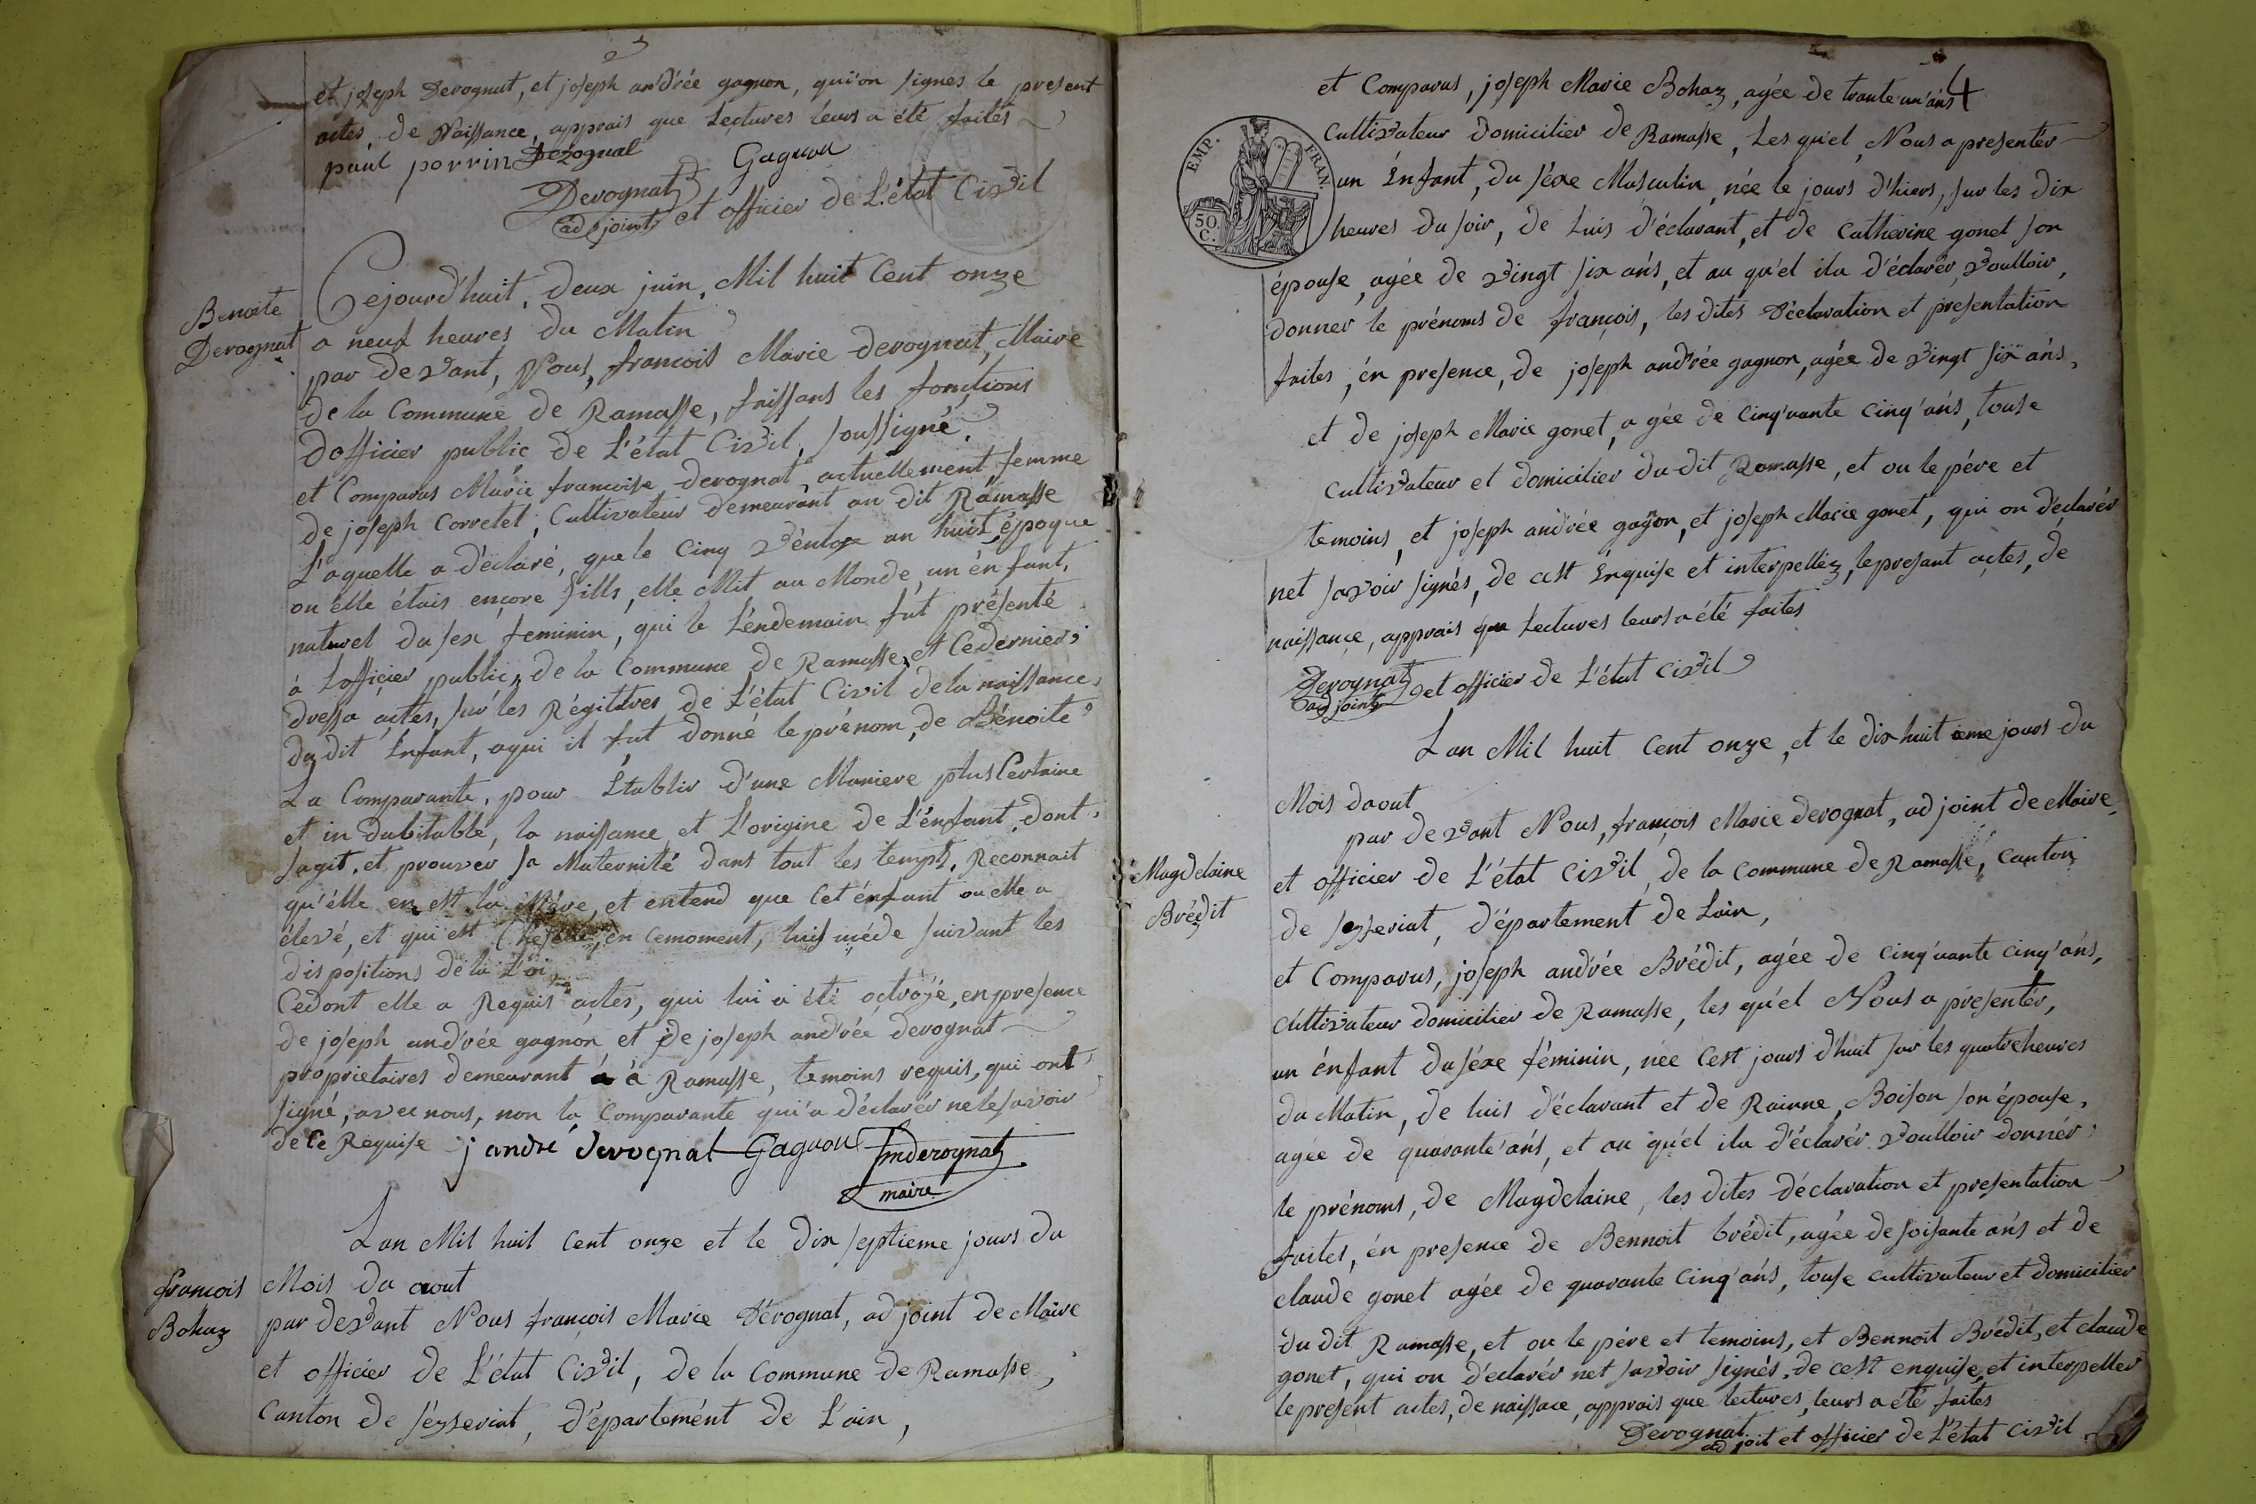 et joseph Derognat, et joseph an'drée gagnon, qui'on signes le present
actes, de Naissance, apprais que Lectures leurs a été faites
paul porrin Derognat Gagnon
Derognat
ad joint et officier de L'état Civil
Benoite
Derognat
Cejourd'huit, deux juin, Mil huit Cent onze
a neuf heures du Matin
par devant, Nous, francois Marie derognat, Maire
de la Commune de Ramasse, faissans les fonctions
dofficier public de L'état Civil, soussigné,
et Comparus Marie francoise derognat actuellement femme
de joseph Corretel, Cultivateur demeurant au dit Ramasse
L'aquelle a déclaré, que le Cinq Véntose an huit, époque
ou elle étais encore fills, elle Mit au Monde, un énfant,
naturel du sex feminin, qui le Léndemain fut présenté
à Lofficier public, de la Commune de Ramasse, et Cedernier,
dressa actes, sur les Régitres de L'état Civil de la naissance,
du dit Enfant, aqui il fut donné le prénom, de Bénoite,
La Comparante, pour Établir d'une Maniere plus Certaine
et in dubitable, la naissance et L'origine de L'énfant, dont,
sagit, et prouver sa Maternité dans tout les temps, Reconnait
qu'élle en est la Mére, et entend que Cet énfant ou elle a
élevé, et qui est en cemoment, luis succéde suivant les
dispositions de la Loi,
Cedont elle a Requis actes, qui lui a été octroÿé, en presence
de joseph andrée gagnon et de joseph andrée derognat
proprietaires demeurant à à Ramasse, temoins requis, qui ont
signé, avec nous, non la Comparante qui'a déclarér ne le savoir
de Ce Requise j andré derognat Gagnon fmderognat
maire
françois
Bohaz
Lan Mil huit Cent onze et le dix septieme jours du
Mois du aout
par devant Nous françois Marie Dérognat, ad joint de Maire
et officier de L'état Civil, de la Commune de Ramasse,
Canton de séyzeriat, d'épartemént de L'ain,
4
et Comparus, joseph Marie Bohaz, agée de trante un'ans
EMP. FRAN.
50 C.
Cultivateur domicilier de Ramasse, Les qu'el, Nous a presentér
un Énfant, du séxe Masculin, née le jours d'hiers, sur les dix
heures du soir, de Luis d'éclarant, et de Catherine gonet son
épouse, agée de vingt six ans, et au qu'el ila d'éclarér, voulloir,
donner le prénoms de françois, les dites déclaration et presentation
faites, én presence, de joseph andrée gagnon, agée de vingt six ans,
et de joseph Marie gonet, agée de Cinq'uante Cinq'ans, touse
Cultivateur et domicilier du dit Ramasse, et ou le pére et
temoins, et joseph andrée gagon, et joseph Marie gonet, qui on déclarér
net savoir signés, de cest énquise et interpelléz, le presant actes, de
naissance, apprais que Lectures leurs a été faites
Derognat
ad joint et officier de L'état Civil
Magdelaine
Brédit
Lan Mil huit Cent onze, et le dix huit ieme jours du
Mois daout
par devant Nous, françois Marie derognat, ad joint de Maire
et officier de L'état Civil, de la Commune de Ramasse, Canton
de seyzeriat, d'épartement de Lain,
et Comparus, joseph andrée Brédit, agée de Cinq'uante cinq'ans,
Cultivateur domicilier de Ramasse, les qu'el Nous a présentér,
un énfant du séxe féminin, née Cest jours d'huit sur les quatre heures
du Matin, de luis d'éclarant et de Rainne, Boison son épouse,
agée de quarante'ans, et au qu'el ila d'éclarér voulloir donnér,
le prénoms, de Magdelaine, les dites déclaration et presentation
faites, én presence de Bennoit brédit, agée de soisante ans et de
claude gonet agée de quarante Cinq'ans, touse cultivateur et domicilier
du dit Ramasse, et ou le pére et temoins, et Bennoit Brédit, et claude
gonet, qui on déclarér net savoir signés, de cest enquise et interpeller
le present actes, de naissace, apprais que lectures, leurs a été faites
Derognat
ad joit et officier de L'état Civil